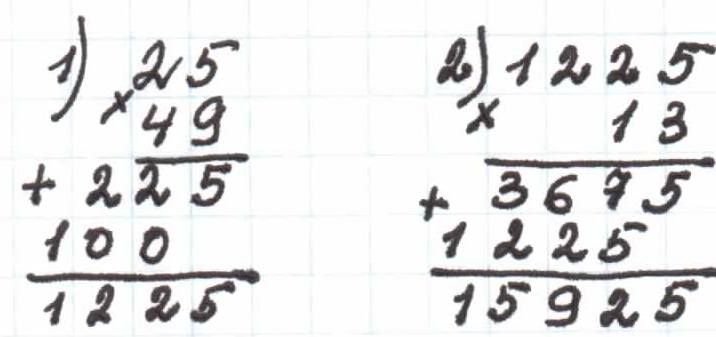 1) 25
× 49
+ 225
100
1225
2) 1225
× 13
+ 3675
1225
15925